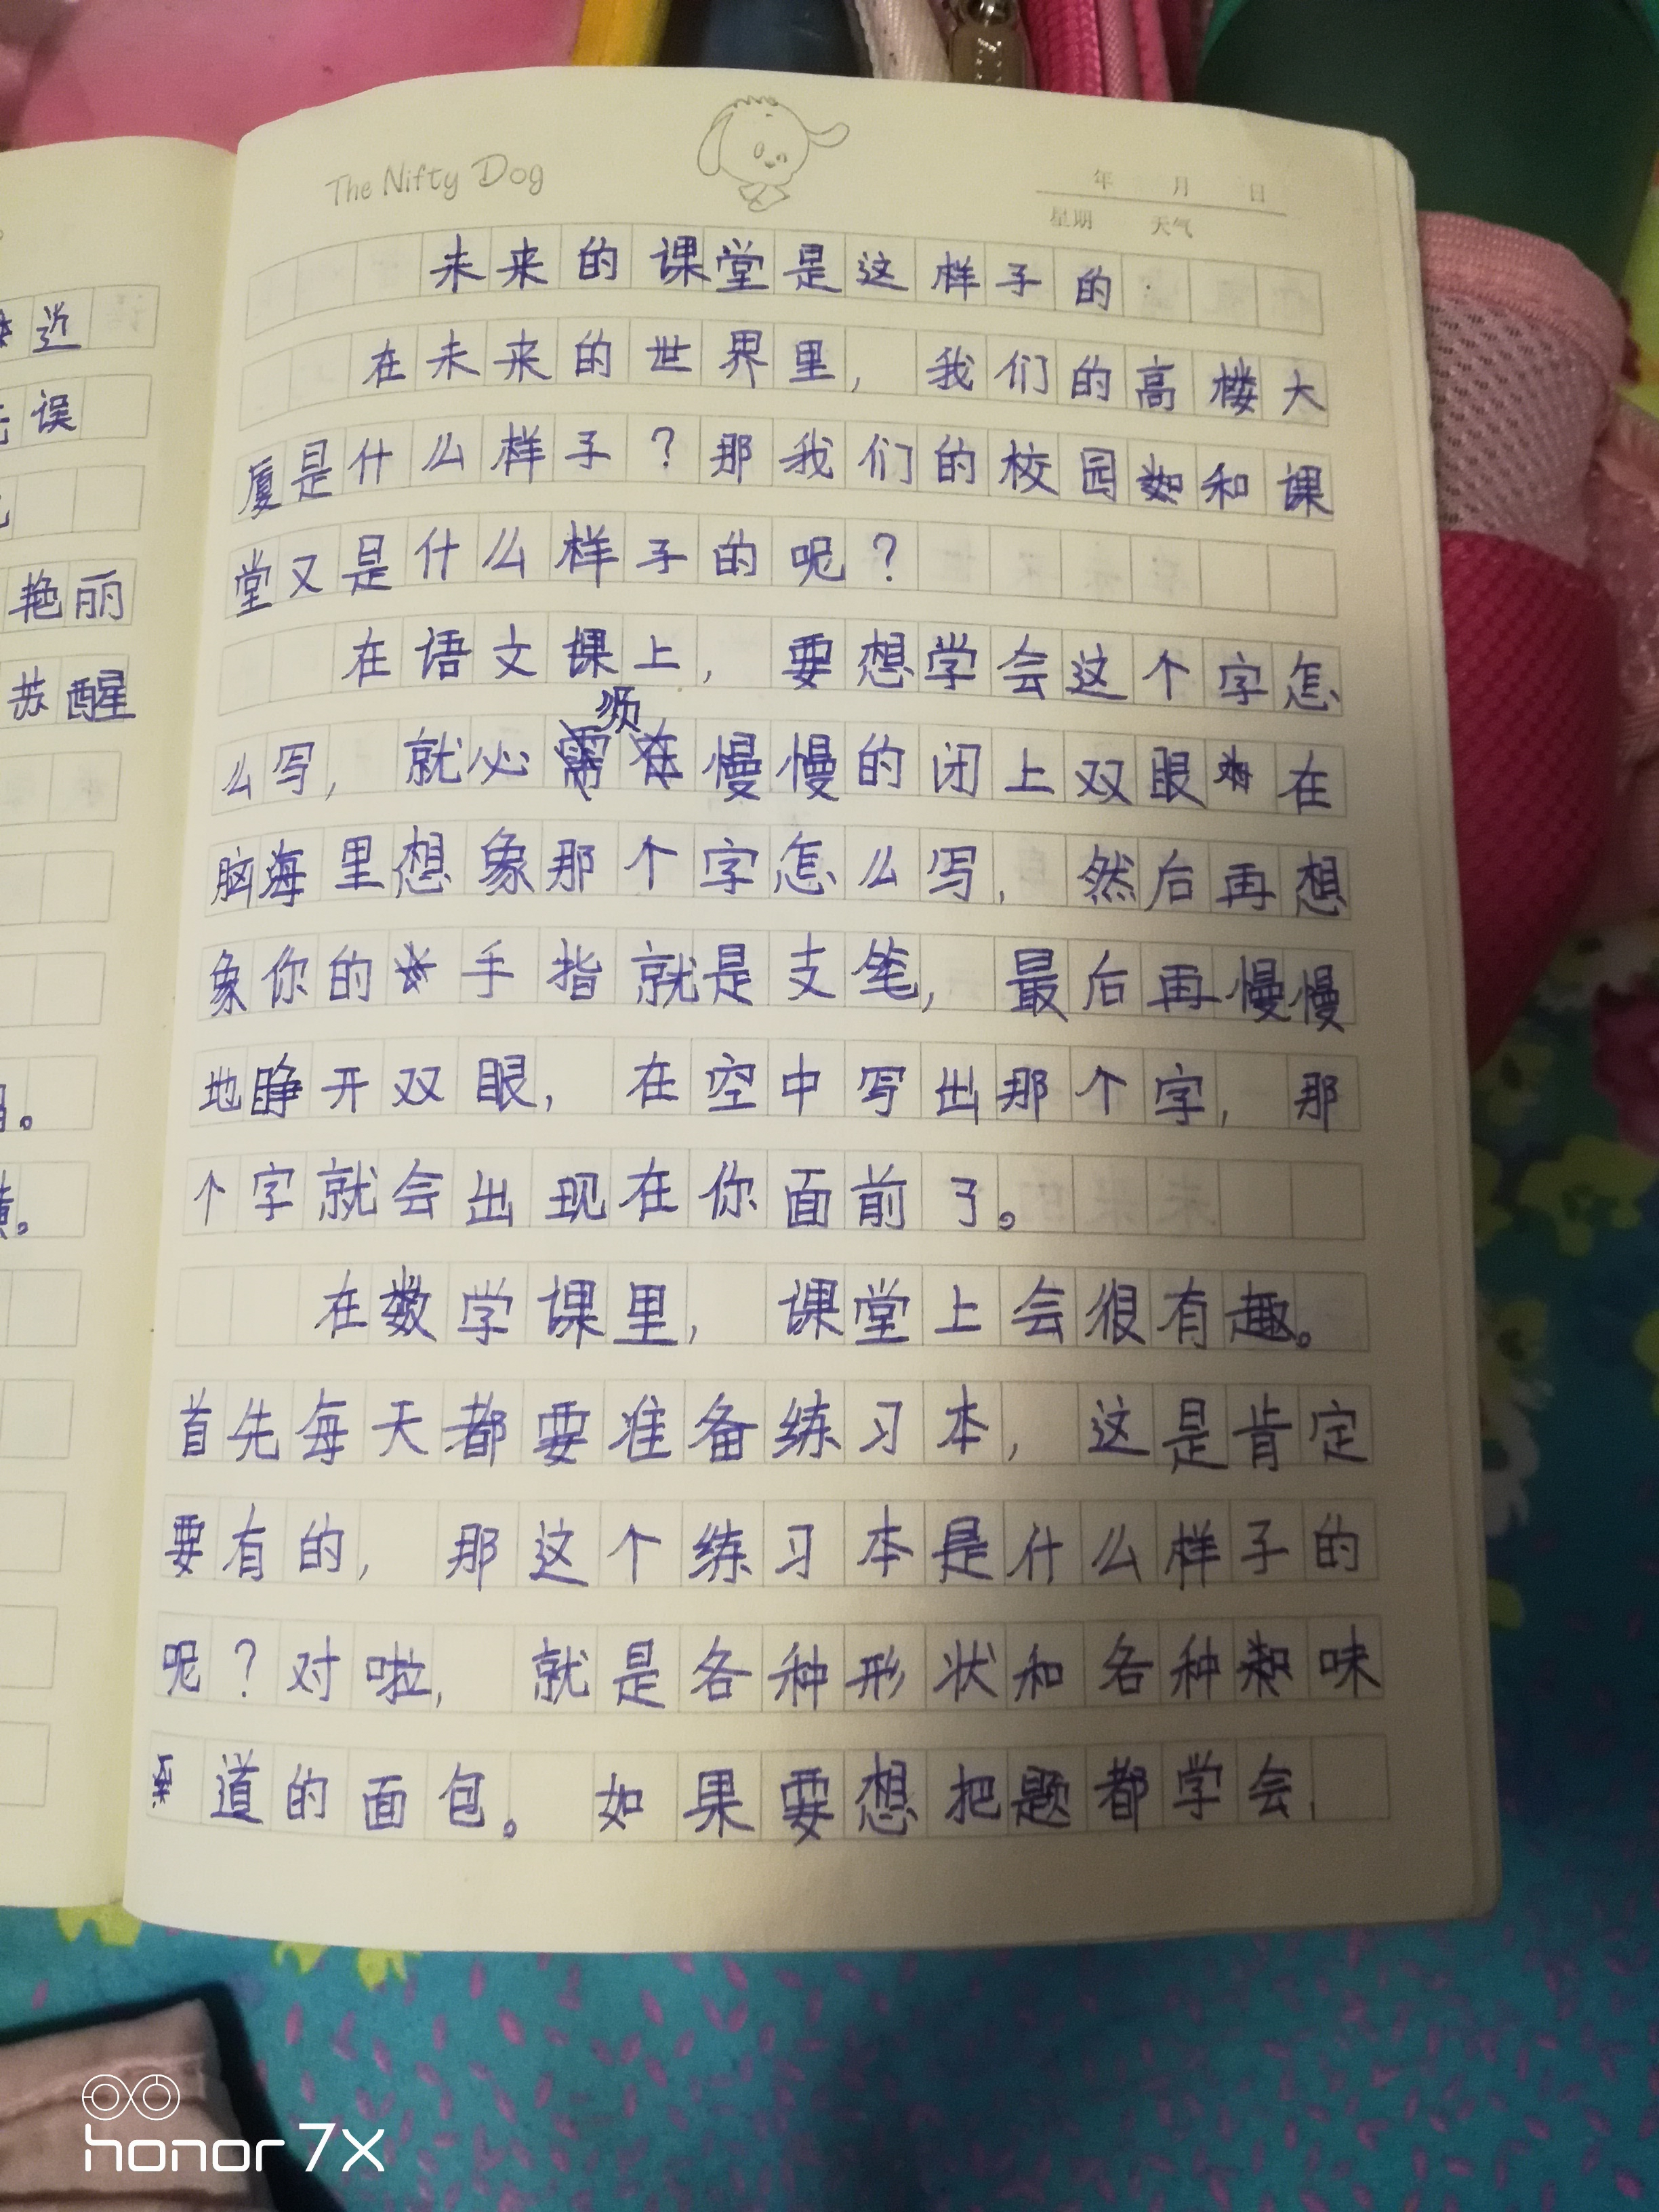 The Nifty Dog
年 月 日
星期 天气
近
误
艳丽
苏醒
未来的课堂是这样子的
在未来的世界里，我们的高楼大
厦是什么样子？那我们的校园和课
堂又是什么样子的呢？
在语文课上，要想学会这个字怎
么写，就必须慢慢的闭上双眼在
脑海里想象那个字怎么写，然后再想
象你的手指就是支笔，最后再慢慢
地睁开双眼，在空中写出那个字，那
个字就会出现在你面前了。
在数学课里，课堂上会很有趣。
首先每天都要准备练习本，这是肯定
要有的，那这个练习本是什么样子的
呢？对啦，就是各种形状和各种味
道的面包。如果要想把题都学会，
honor 7X